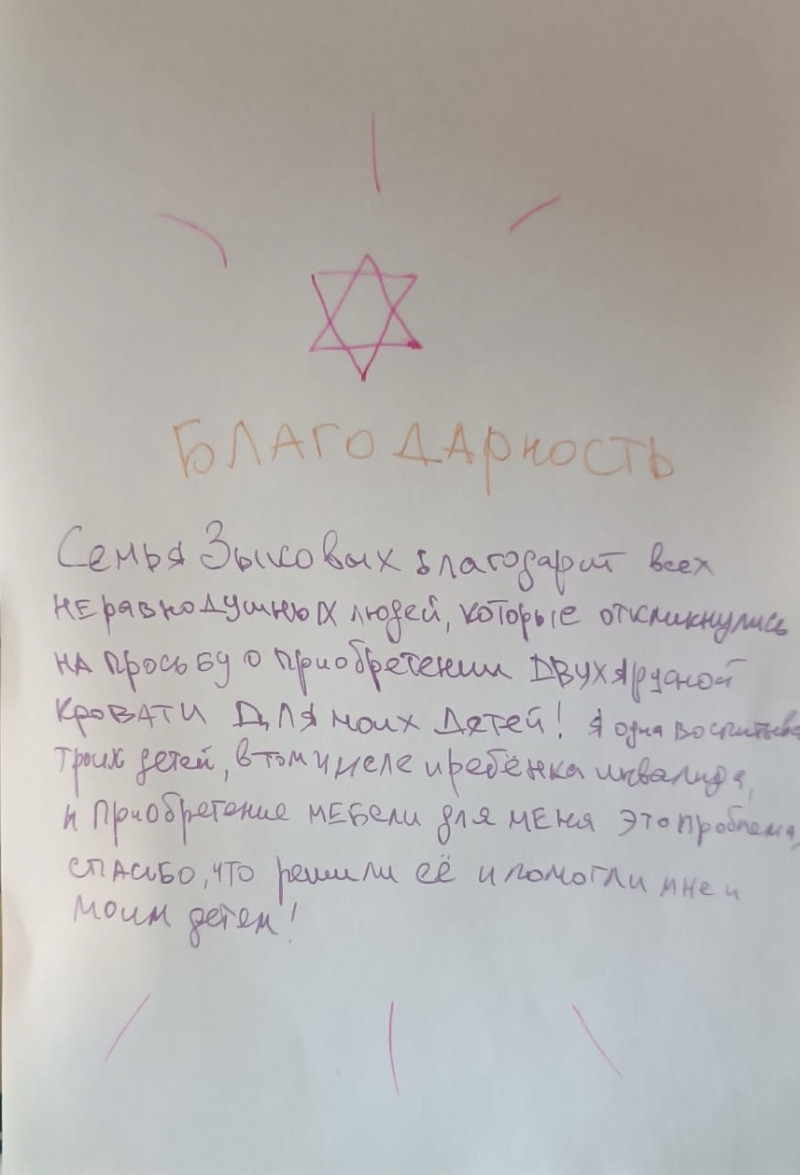 БЛАГОДАРНОСТЬ
Семья Зыковых благодарит всех
неравнодушных людей, которые откликнулись
на просьбу о приобретении двухярусной
кровати для моих детей! Я одна воспитыва
троих детей, в том числе и ребёнка инвалида,
и приобретение мебели для меня это проблема,
спасибо, что решили её и помогли мне и
моим детям!